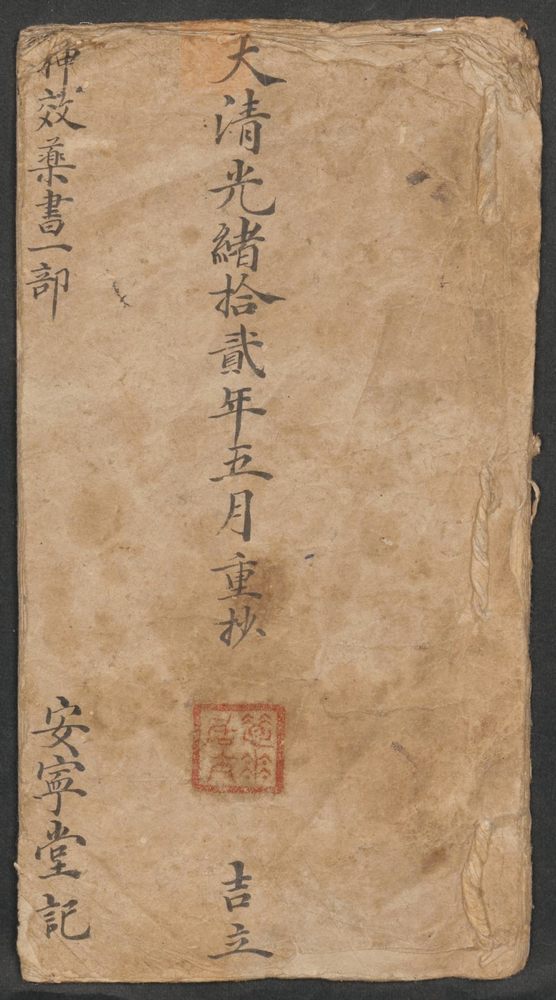 大清光緒拾貳年五月重抄
吉立
神效藥書一部
安寧堂記